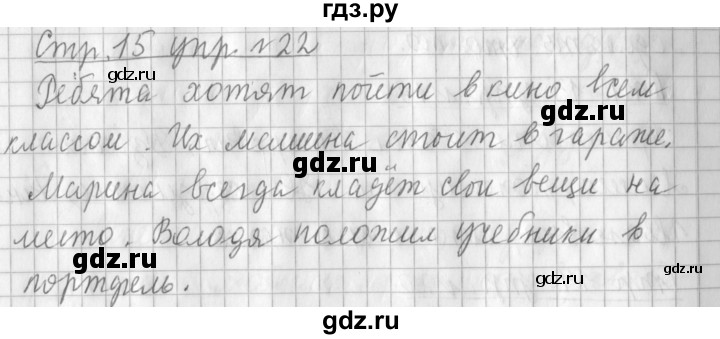 гдз.ру
Стр. 15 упр. №22
Ребята хотят пойти в кино всем
gdz.ru
классом. Их машина стоит в гараже.
gdz.ru
Марина всегда кладёт свои вещи на
место. Володя положил учебники в
gdz.ru
gdz.ru
портфель.
gdz.ru